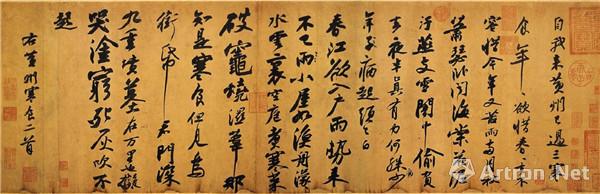 自我來黃州已過三寒
食年〻欲惜春〻去不
容惜今年又苦雨兩月秋
蕭瑟臥聞海棠花泥
汙燕支雪闇中偷負
去夜半真有力何殊少
年子病起頭已白
春江欲入戶雨勢來
不已雨小屋如漁舟濛〻
水雲裏空庖煮寒菜
破竈燒濕葦那
知是寒食但見烏
銜帋君門深
九重墳墓在万里也擬
哭塗窮死灰吹不
起
右黃州寒食二首
Artron.Net